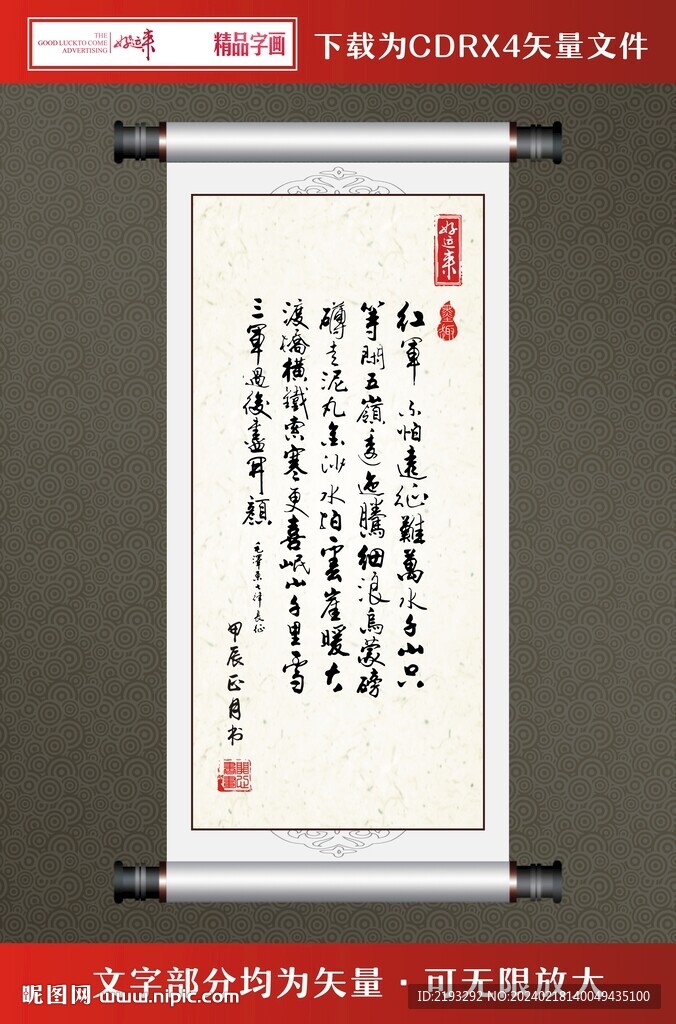 THE
GOOD LUCKTO COME
ADVERTISING
好运来
精品字画
下载为CDRX4矢量文件
好运来
墨趣
红軍不怕遠征難萬水千山只
等閑五嶺逶迤騰細浪烏蒙磅
礴走泥丸金沙水拍雲崖暖大
渡橋橫鐵索寒更喜岷山千里雪
三軍過後盡開顏
毛澤東七律長征
甲辰正月书
文字部分均为矢量·可无限放大
昵图网 www.nipic.com
ID:2193292 NO:20240218140049435100